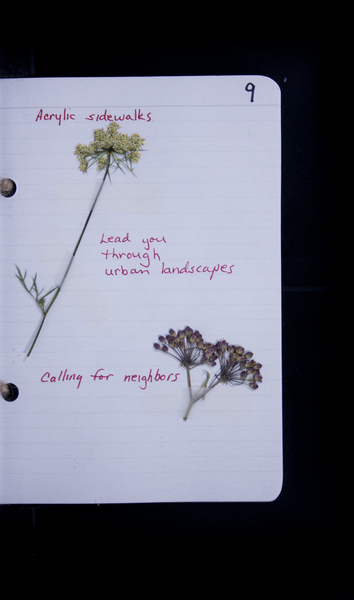 9
Acrylic sidewalks
Lead you
through
urban landscapes
Calling for neighbors